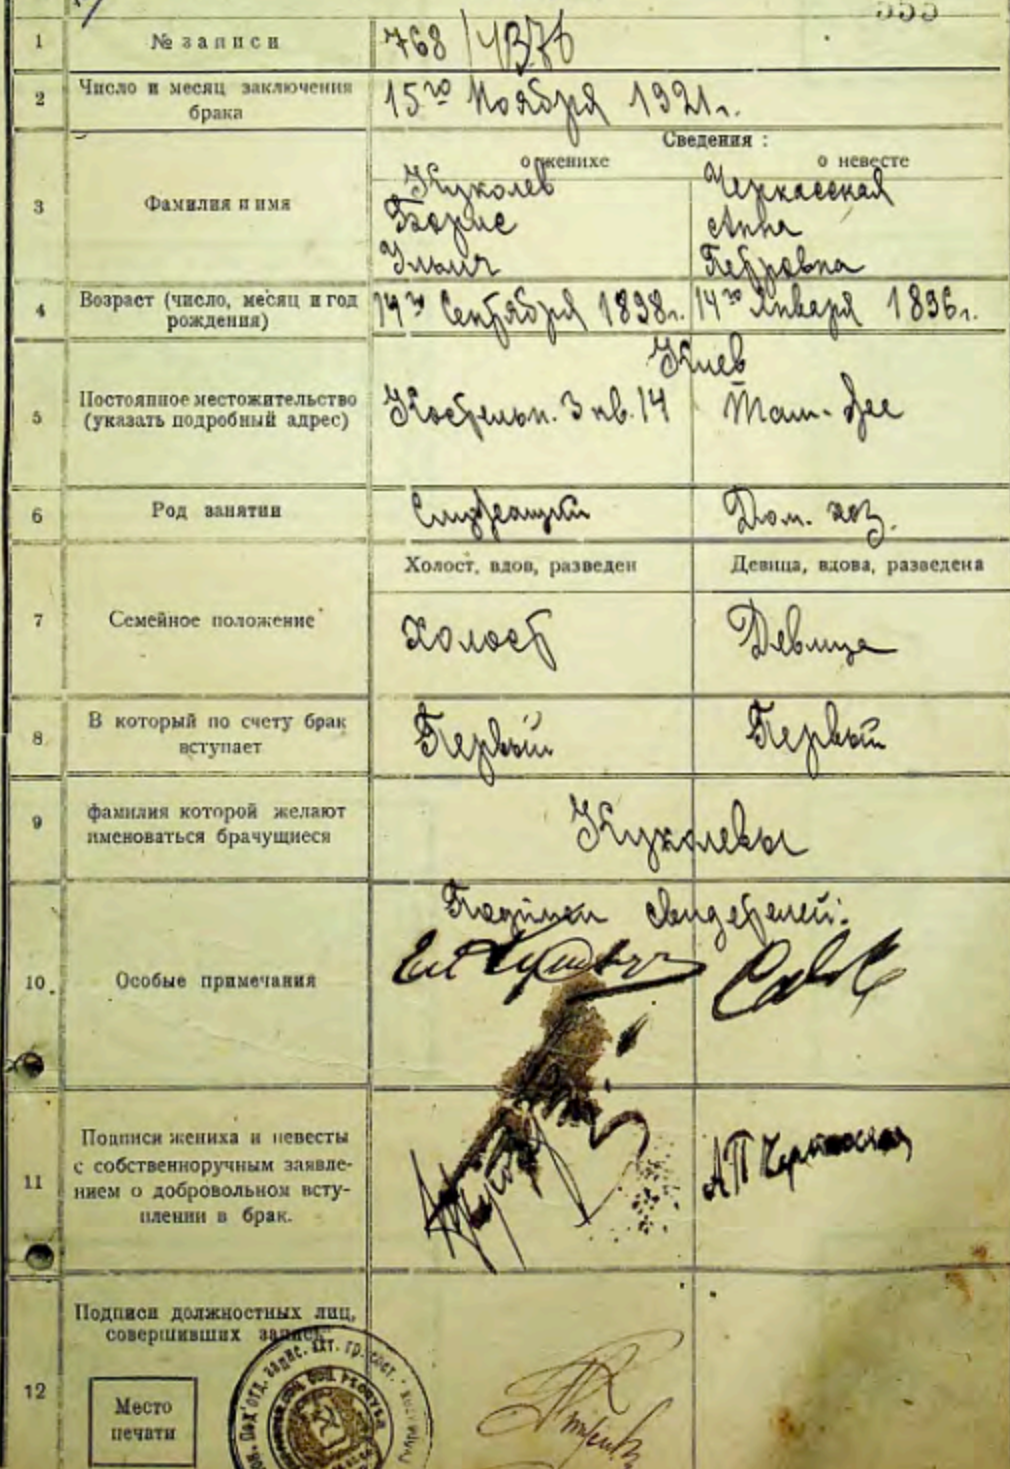 555
1 № записи 768/1376
2 Число и месяц заключения
брака
15го Ноября 1921г.
Сведения :
о женихе о невесте
3 Фамилия и имя
Куколев Черкасская
Борис Анна
Ильич Петровна
4 Возраст (число, месяц и год
рождения)
14го Сентября 1898г. 14го Января 1896г.
Киев
5 Постоянное местожительство
(указать подробный адрес)
Костельн. 3 кв. 14 Там-же
6 Род занятии Служащий Дом. хоз.
Холост, вдов, разведен Девица, вдова, разведена
7 Семейное положение Холост Девица
8 В который по счету брак
вступает
Первый Первый
9 фамилия которой желают
именоваться брачущиеся
Куколевы
Подписи свидетелей:
10. Особые примечания
11 Подписи жениха и невесты
с собственноручным заявле-
нием о добровольном всту-
плении в брак.
АП Черкасская
12 Подписи должностных лиц,
совершивших запись.
Место
печати
отд. запис. акт. гр. сост.